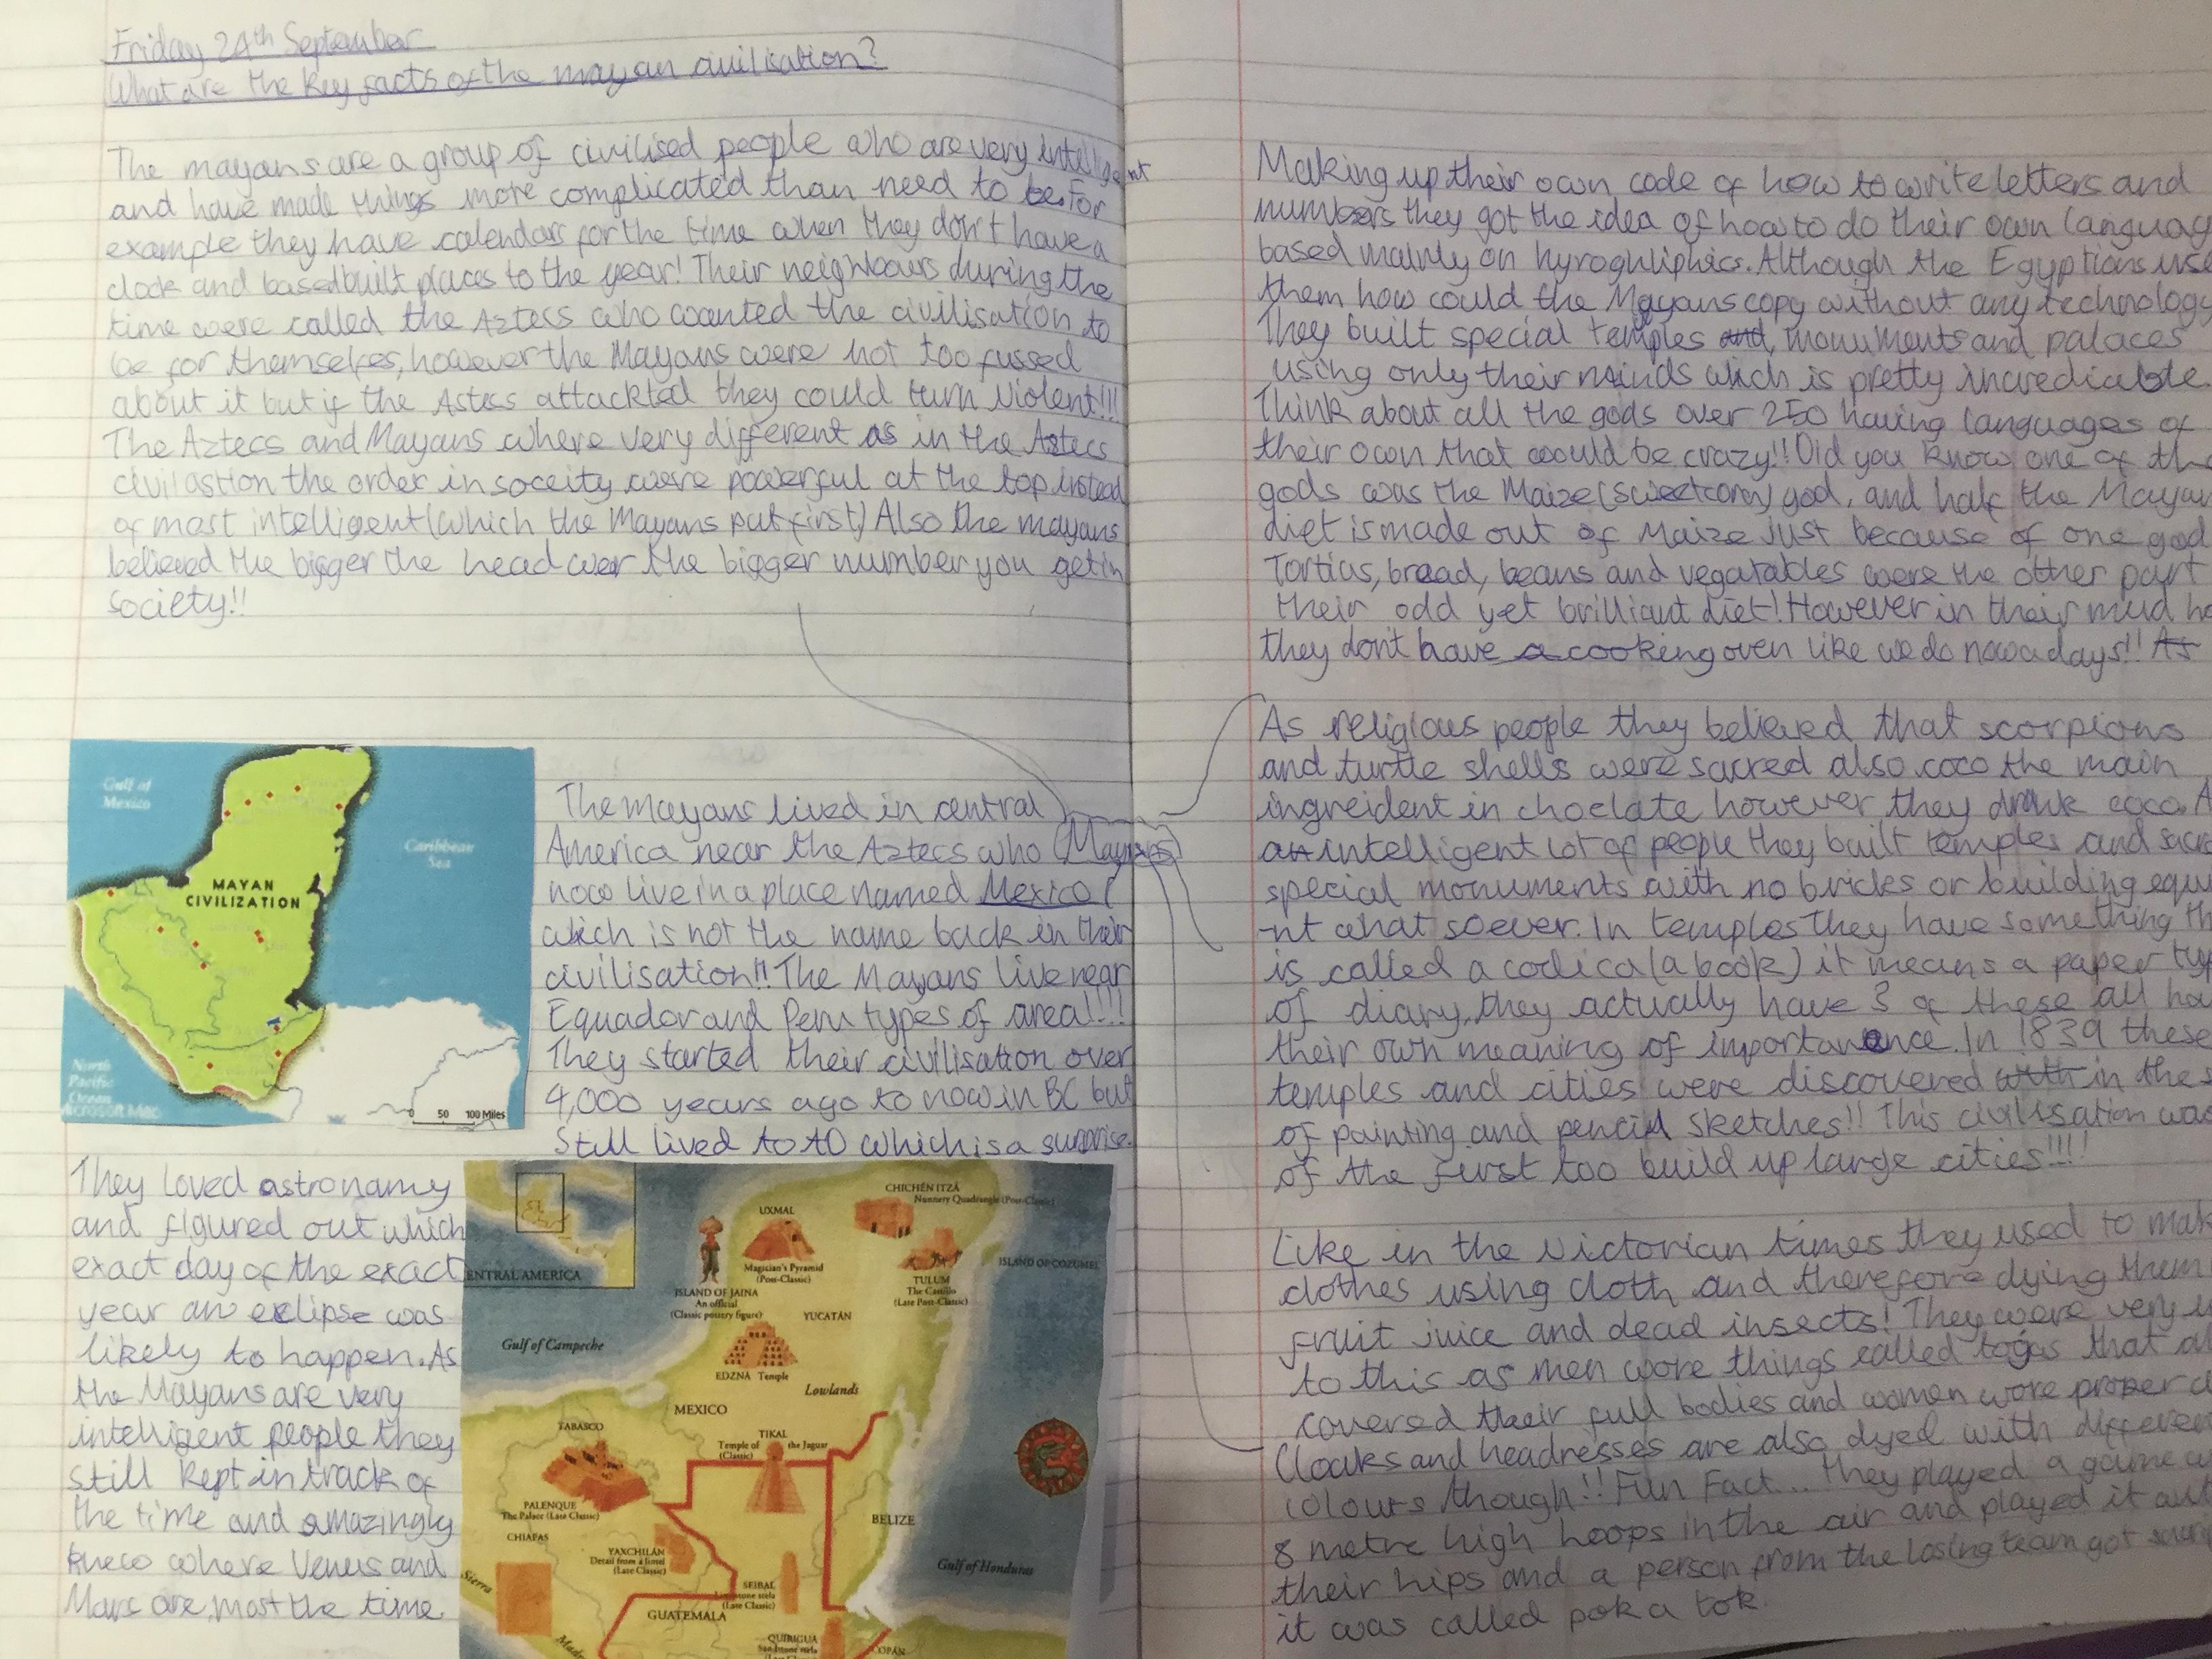 Friday 24th September
What are the key facts of the mayan civilisation?
The mayans are a group of civilised people who are very intelligent
and have made things more complicated than need to be. For
example they have calendars for the time when they don't have a
clock and based built places to the year! Their neighbours during the
time were called the Aztecs who wanted the civilisation to
be for themselfes, however the Mayans were not too fussed
about it but if the Astecs attackted they could turn violent!!!
The Aztecs and Mayans where very different as in the Aztecs
civilastion the order in soceity were powerful at the top instead
of most intelligent (which the Mayans put first) Also the mayans
believed the bigger the head wear the bigger number you get in
society!!
Gulf of
Mexico
Caribbean
Sea
MAYAN
CIVILIZATION
North
Pacific
Ocean
Microsoft Map
0 50 100 Miles
The Mayans lived in central
America near the Aztecs who (Mayans)
now live in a place named Mexico (
which is not the name back in their
civilisation!! The Mayans live near
Equador and Peru types of area!!!!
They started their civilisation over
4,000 years ago to now in BC but
still lived to AD which is a surprise.
They loved astronamy
and figured out which
exact day of the exact
year an eclipse was
likely to happen. As
the Mayans are very
intelligent people they
still kept in track of
the time and amazingly
knew where Venus and
Mars are most the time.
ENTRAL AMERICA
CHICHÉN ITZÁ
Nunnery Quadrangle (Post-Classic)
UXMAL
Magician's Pyramid
(Post-Classic)
ISLAND OF COZUMEL
TULUM
The Castillo
(Late Post-Classic)
ISLAND OF JAINA
An official
(Classic pottery figure)
YUCATÁN
Gulf of Campeche
EDZNÁ Temple
Lowlands
MEXICO
TABASCO
TIKAL
Temple of the Jaguar
(Classic)
PALENQUE
The Palace (Late Classic)
BELIZE
CHIAPAS
YAXCHILÁN
Detail from a lintel
(Late Classic)
Gulf of Honduras
Sierra
SEIBAL
Limestone stela
(Late Classic)
GUATEMALA
Madre
QUIRIGUÁ
Sandstone stela
(Late Classic)
COPÁN
Making up their own code of how to write letters and
numbers they got the idea of how to do their own languag
based mainly on hyroghliphics. Although the Egyptians use
them how could the Mayans copy without any technology
They built special temples and, monuments and palaces
using only their minds which is pretty increediable.
Think about all the gods over 250 having languages of
their own that would be crazy!! Did you know one of the
gods was the Maize (sweetcorn) god, and half the Mayan
diet is made out of Maize just because of one god
Tortias, bread, beans and vegatables were the other part
their odd yet brilliant diet! However in their mud ho
they don't have a cooking oven like we do nowadays!! As
As religious people they believed that scorpions
and turtle shells were sacred also coco the main
ingreident in choclate however they drink coco. A
an intelligent lot of people they built temples and sacr
special monuments with no bricks or building equi
-nt what soever. In temples they have something th
is called a codica (a book) it means a paper typ
of diary, they actually have 3 of these all ha
their own meaning of importanence. In 1839 these
temples and cities were discovered with in the s
of painting and pencil sketches!! This civilisation was
of the first too build up large cities!!!!
Like in the Victorian times they used to mak
clothes using cloth and therefore dying them
fruit juice and dead insects! They were very u
to this as men wore things called togas that al
covered their full bodies and women wore proper d
Cloaks and headresses are also dyed with differen
colours though!! Fun Fact... they played a game w
8 metre high hoops in the air and played it
their hips and a person from the losing team got
it was called pok a tok.